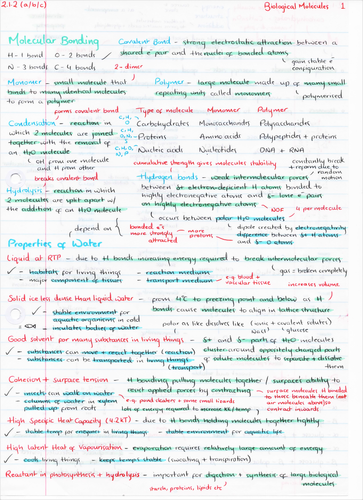 2.1.2 (a/b/c)
Biological Molecules 1
Molecular Bonding
Covalent Bond - strong electrostatic attraction between a
shared e⁻ pair and the nuclei of bonded atoms
H - 1 bond O - 2 bonds
N - 3 bonds C - 4 bonds
2 - dimer
gain stable e⁻ configuration
Monomer - small molecule that
bonds to many identical molecules
to form a polymer
Polymer - large molecule made up of many small
repeating units called monomers
polymerised
forms covalent bond
Type of molecule Monomer Polymer
Condensation - reaction in
which 2 molecules are joined
together with the removal of
an H₂O molecule
OH from one molecule
and H from other
Carbohydrates Monosaccharides Polysaccharides
Proteins Amino acids Polypeptides + proteins
Nucleic acids Nucleotides DNA + RNA
breaks covalent bond
Hydrolysis - reaction in which
2 molecules are split apart with
the addition of an H₂O molecule
cumulative strength gives molecules stability
constantly break
+ reform due to
random motion
Hydrogen bonds - weak intermolecular forces
between δ+ electron-deficient H atoms bonded to
highly electronegative atoms and δ- lone e⁻ pair
on highly electronegative atoms
NOF
occurs between polar H₂O molecules
depend on
bonded e⁻s
more strongly
attracted
more
protons
dipole created by electronegativity
difference between δ+ H atoms
and δ- O atoms
Properties of Water
Liquid at RTP - due to H bonds increasing energy required to break intermolecular forces
✓ - habitats for living things - reaction mediums
✓ - major component of tissues - transport medium
e.g. blood +
vascular tissue
gas: broken completely
increases volume
Solid ice less dense than liquid water - from 4°C to freezing point and below as H
bonds cause molecules to align in lattice structure
✓ - stable environment for
aquatic organisms in cold
- insulates bodies of water
polar as like dissolves like (ionic + covalent solutes)
NaCl glucose
Good solvent for many substances in living things - δ+ and δ- parts of H₂O molecules
cluster around oppositely charged parts
of solute molecules to separate + dissolve
them
✓ - substances can move + react together (reaction)
✓ - substances can be transported in living things
(transport)
Cohesion + surface tension - H bonding pulling molecules together / surface's ability to
resist applied forces by contracting
✓ - insects can walk on water
✓ - columns of water in xylem
pulled up from roots
e.g. pond skaters + some small lizards
lots of energy required to increase KE / temp
surface molecules H bonded
to those beneath them
contract inwards
High Specific Heat Capacity (4.2kJ) - due to H bonds holding molecules together tightly
✓ - stable temp for enzymes in living things - stable environment for aquatic life
High Latent Heat of Vapourisation - evaporation requires relatively large amount of energy
✓ - cools living things - keeps temps stable (sweating + transpiration)
Reactant in photosynthesis + hydrolysis - important for digestion + synthesis of large biological
molecules
starch, proteins, lipids etc